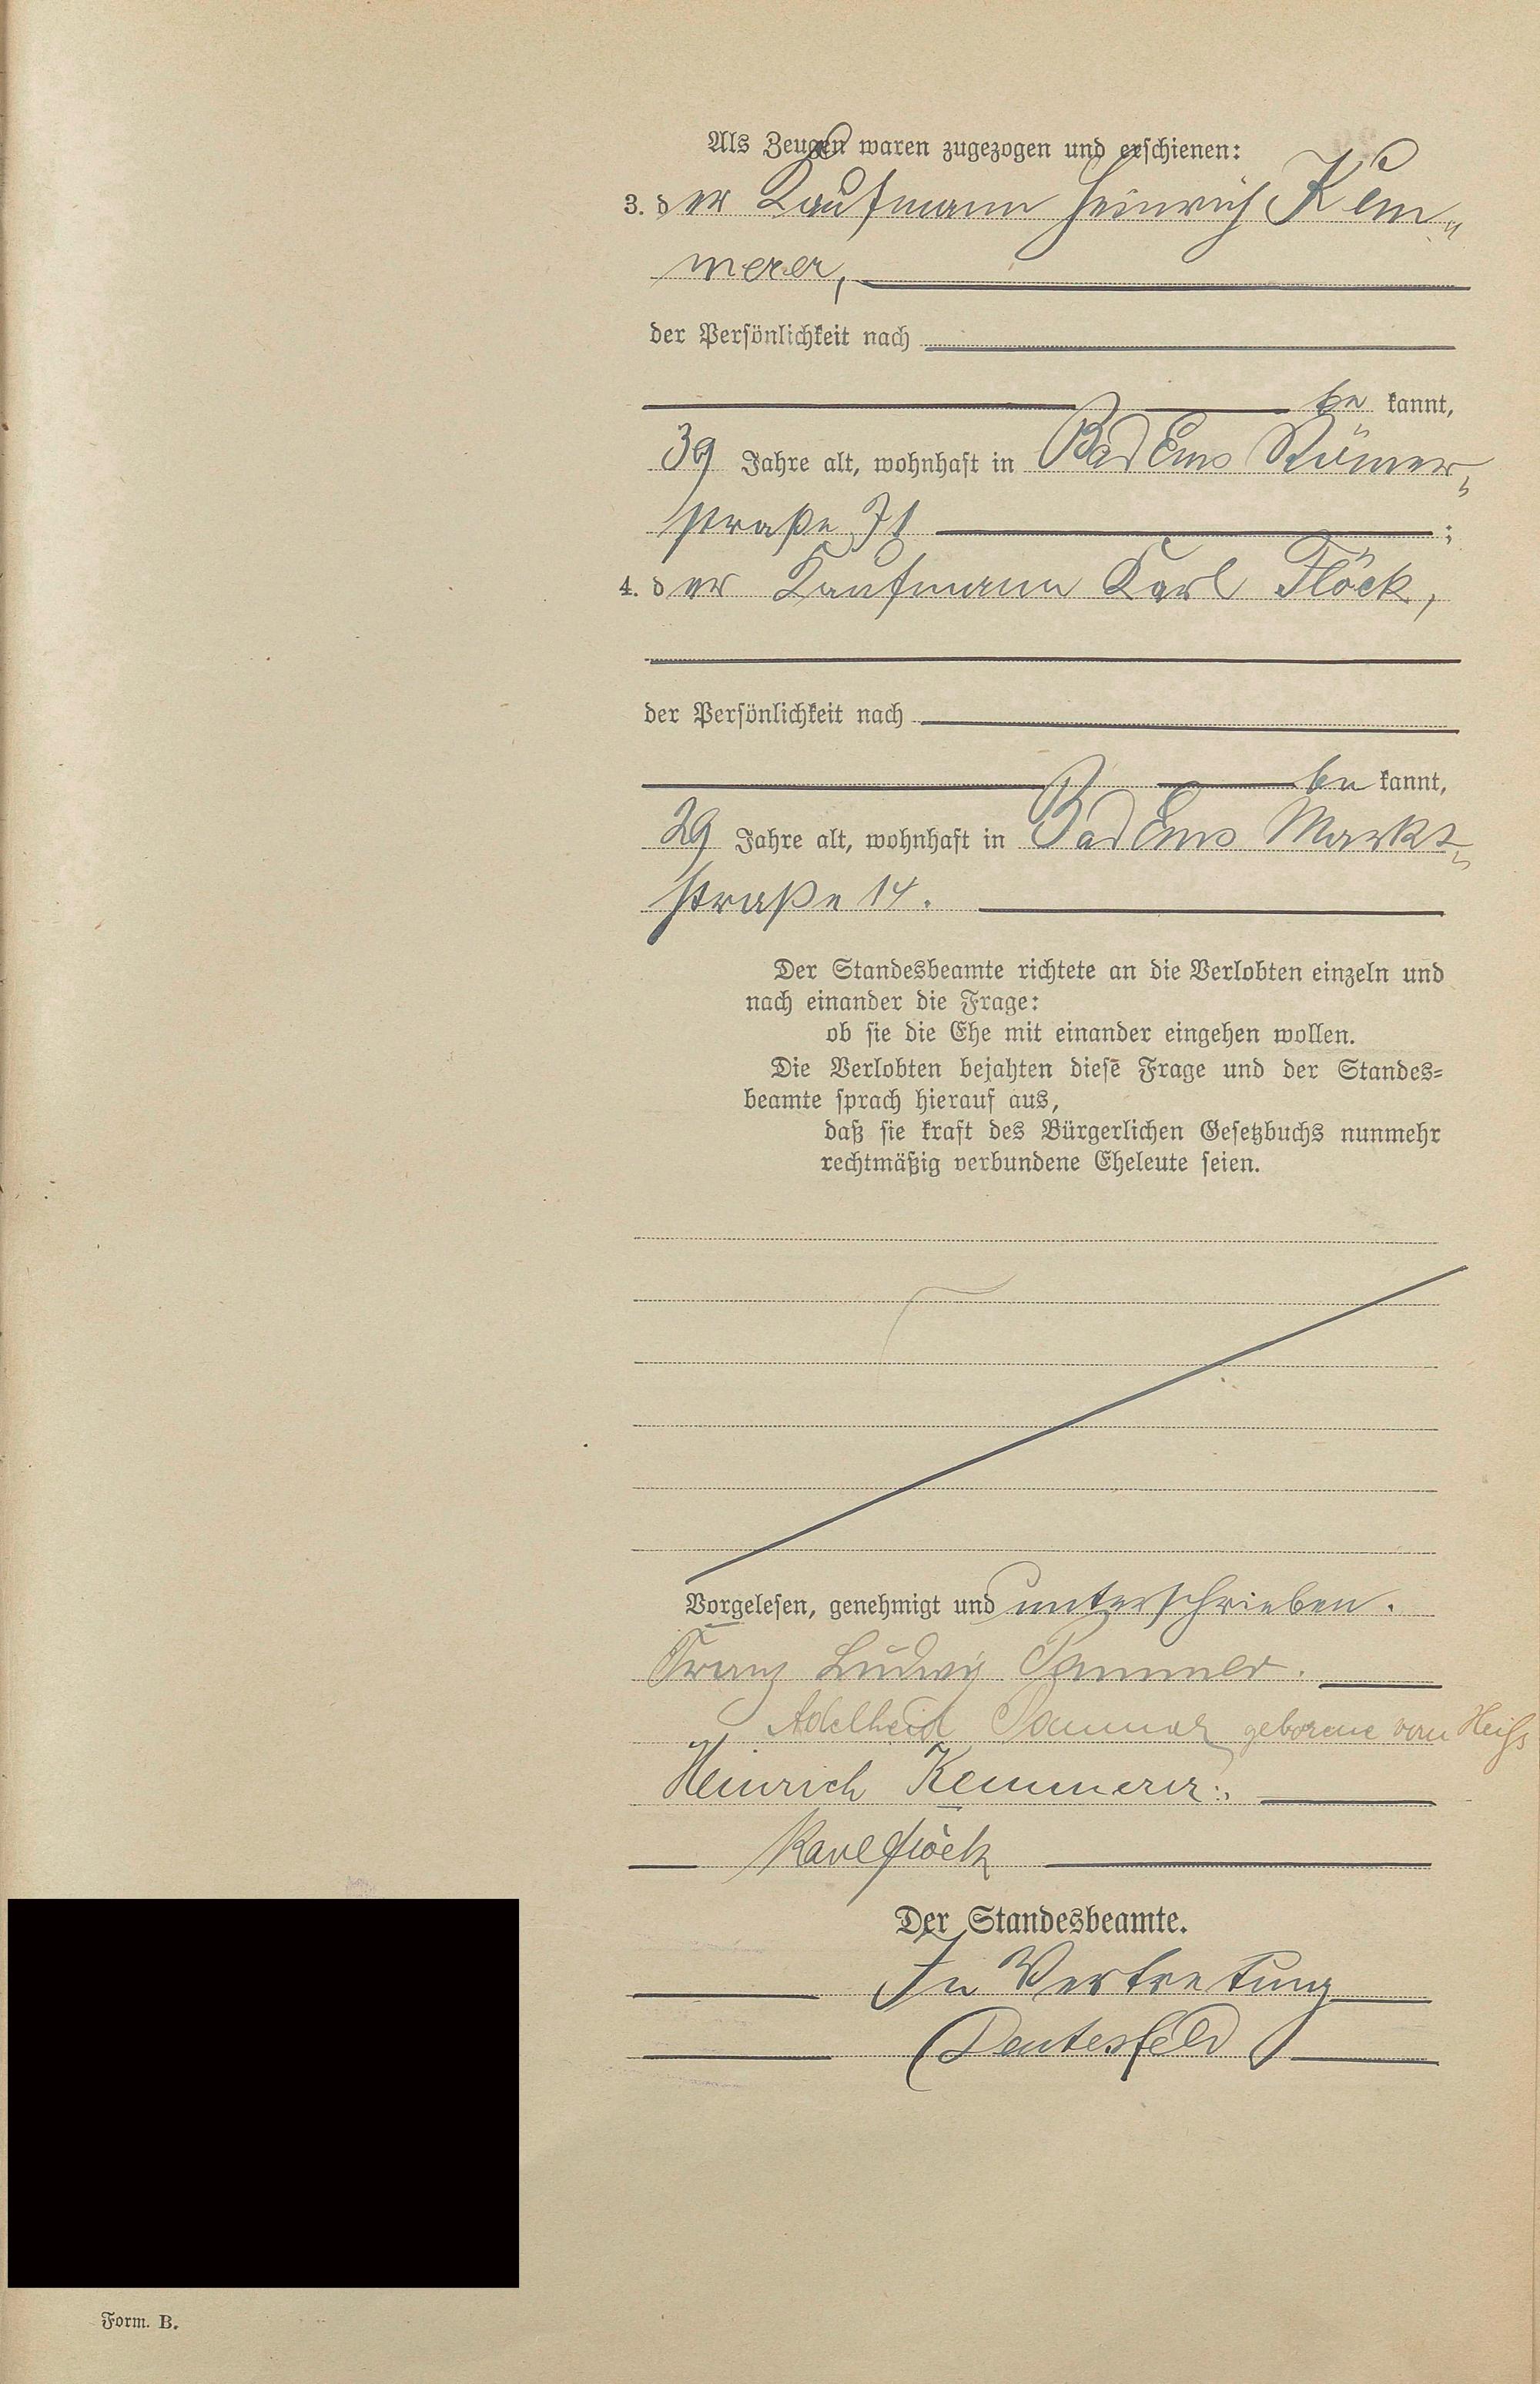 Als Zeugen waren zugezogen und erschienen:
3. der Kaufmann Heinrich Kem-
merer,
der Persönlichkeit nach
be kannt,
39 Jahre alt, wohnhaft in Bad Ems Römer-
straße 71 ;
4. der Kaufmann Karl Flöck,
der Persönlichkeit nach
be kannt,
29 Jahre alt, wohnhaft in Bad Ems Markt-
straße 14.
Der Standesbeamte richtete an die Verlobten einzeln und
nach einander die Frage:
ob sie die Ehe mit einander eingehen wollen.
Die Verlobten bejahten diese Frage und der Standes-
beamte sprach hierauf aus,
daß sie kraft des Bürgerlichen Gesetzbuchs nunmehr
rechtmäßig verbundene Eheleute seien.
Vorgelesen, genehmigt und unterschrieben.
Franz Ludwig
Adelheid geborene
Heinrich Kemmerer.
Karl Flöck
Der Standesbeamte.
In Vertretung
Form. B.